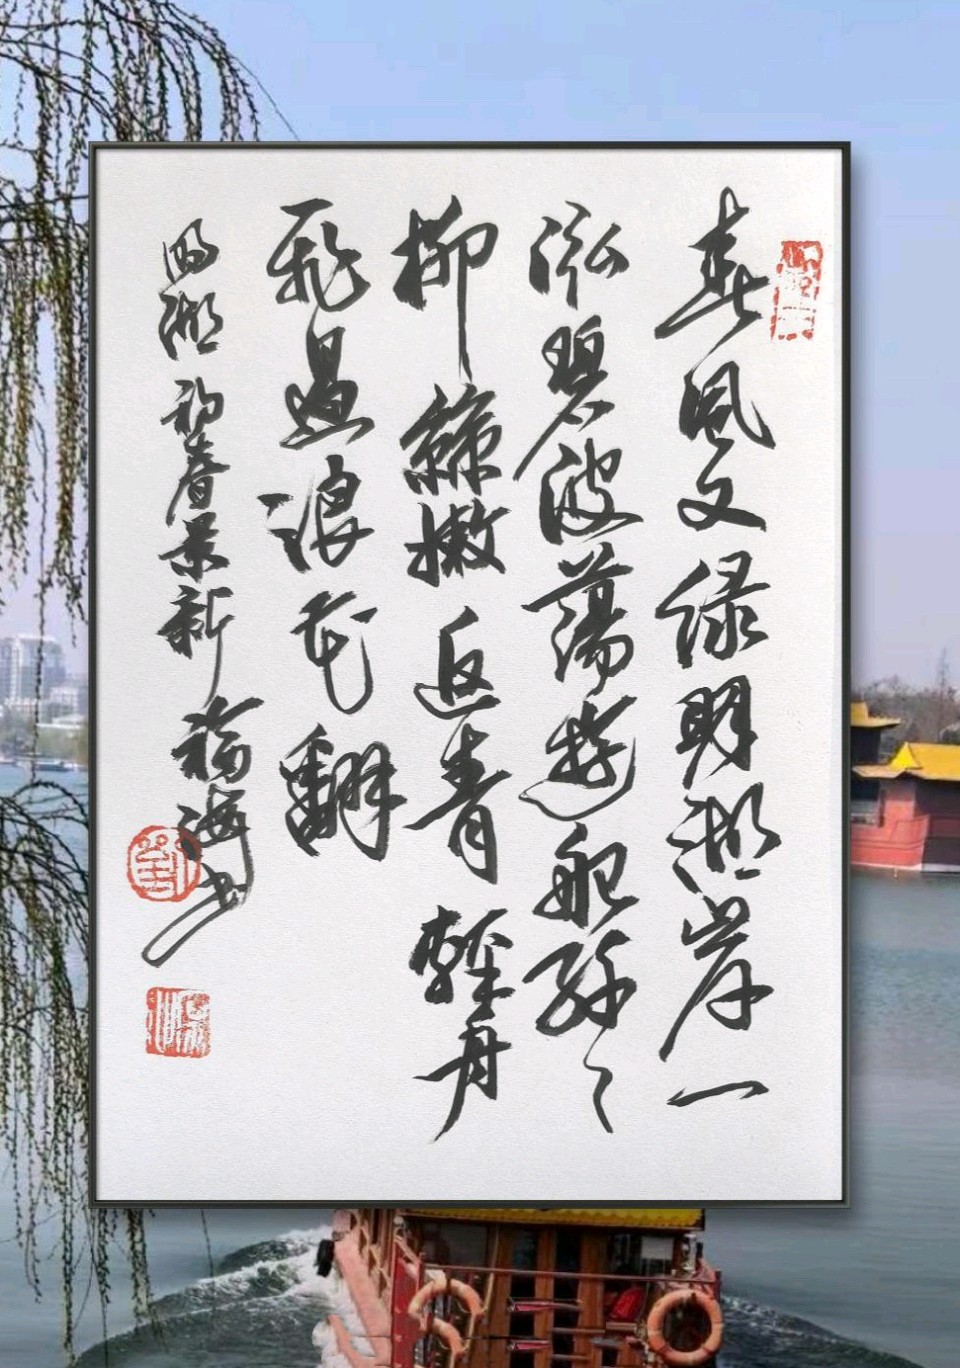 春风又绿明湖岸一
泓碧波蕩遊船
柳絲嫩返青輕舟
飛過浪花翻
明湖初春景新 福海书